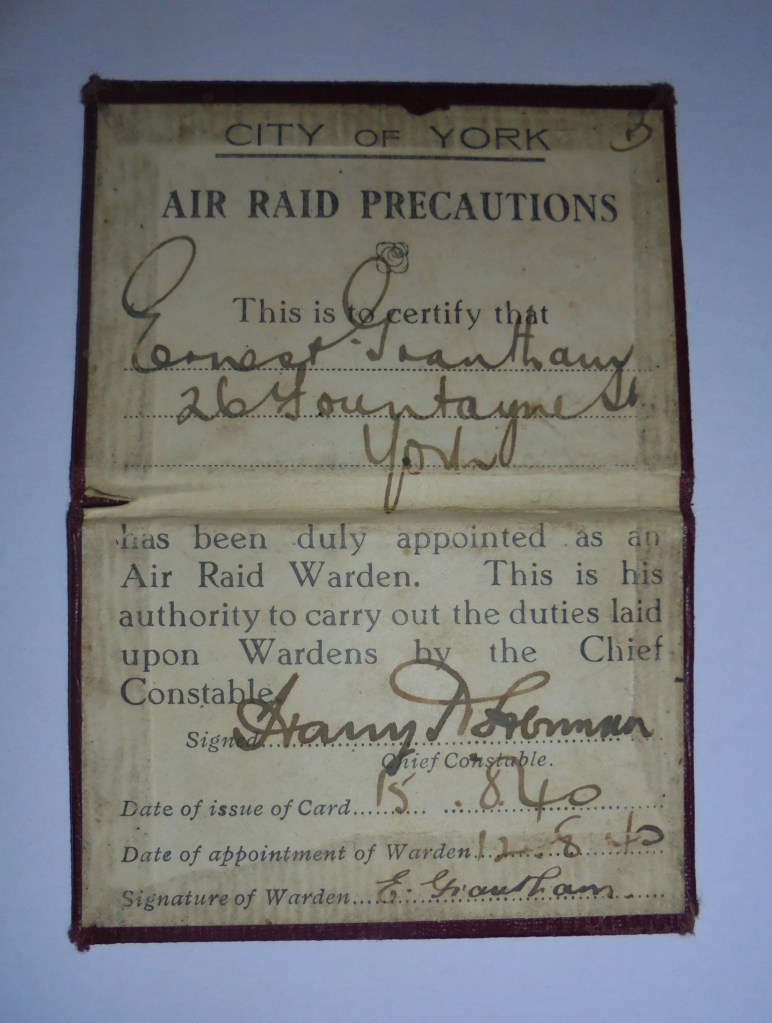 CITY OF YORK
AIR RAID PRECAUTIONS
This is to certify that
Ernest Grantham
26 Fountayne St.
York
has been duly appointed as an
Air Raid Warden. This is his
authority to carry out the duties laid
upon Wardens by the Chief
Constable
Signed Harry H
Chief Constable.
Date of issue of Card 15 . 8 40
Date of appointment of Warden 12 . 8 40
Signature of Warden E. Grantham.